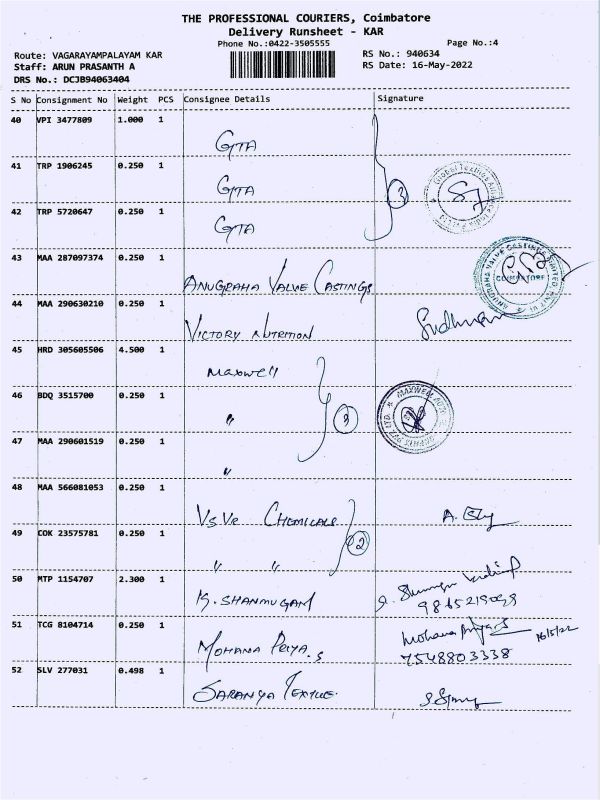 THE PROFESSIONAL COURIERS, Coimbatore
Delivery Runsheet - KAR
Phone No.:0422-3505555
Page No.:4
Route: VAGARAYAMPALAYAM KAR
RS No.: 940634
Staff: ARUN PRASANTH A
RS Date: 16-May-2022
DRS No.: DCJB94063404
S No Consignment No Weight PCS Consignee Details Signature
40 VPI 3477809 1.000 1
GTA
41 TRP 1906245 0.250 1
GTA
3
42 TRP 5720647 0.250 1
GTA
43 MAA 287097374 0.250 1
ANUGRAHA VALVE CASTINGS
COIMBATORE
44 MAA 290630210 0.250 1
VICTORY NUTRITION
45 HRD 305605506 4.500 1
Maxwell
46 BDQ 3515700 0.250 1
" 3
47 MAA 290601519 0.250 1
"
48 MAA 566081053 0.250 1
VSVE CHEMICALS
49 COK 23575781 0.250 1
" " 2
50 MTP 1154707 2.300 1
K. SHANMUGAM
51 TCG 8104714 0.250 1
MOHANA PRIYA.S
16/5/22
7548803338
52 SLV 277031 0.498 1
SARANYA TEXTILE.